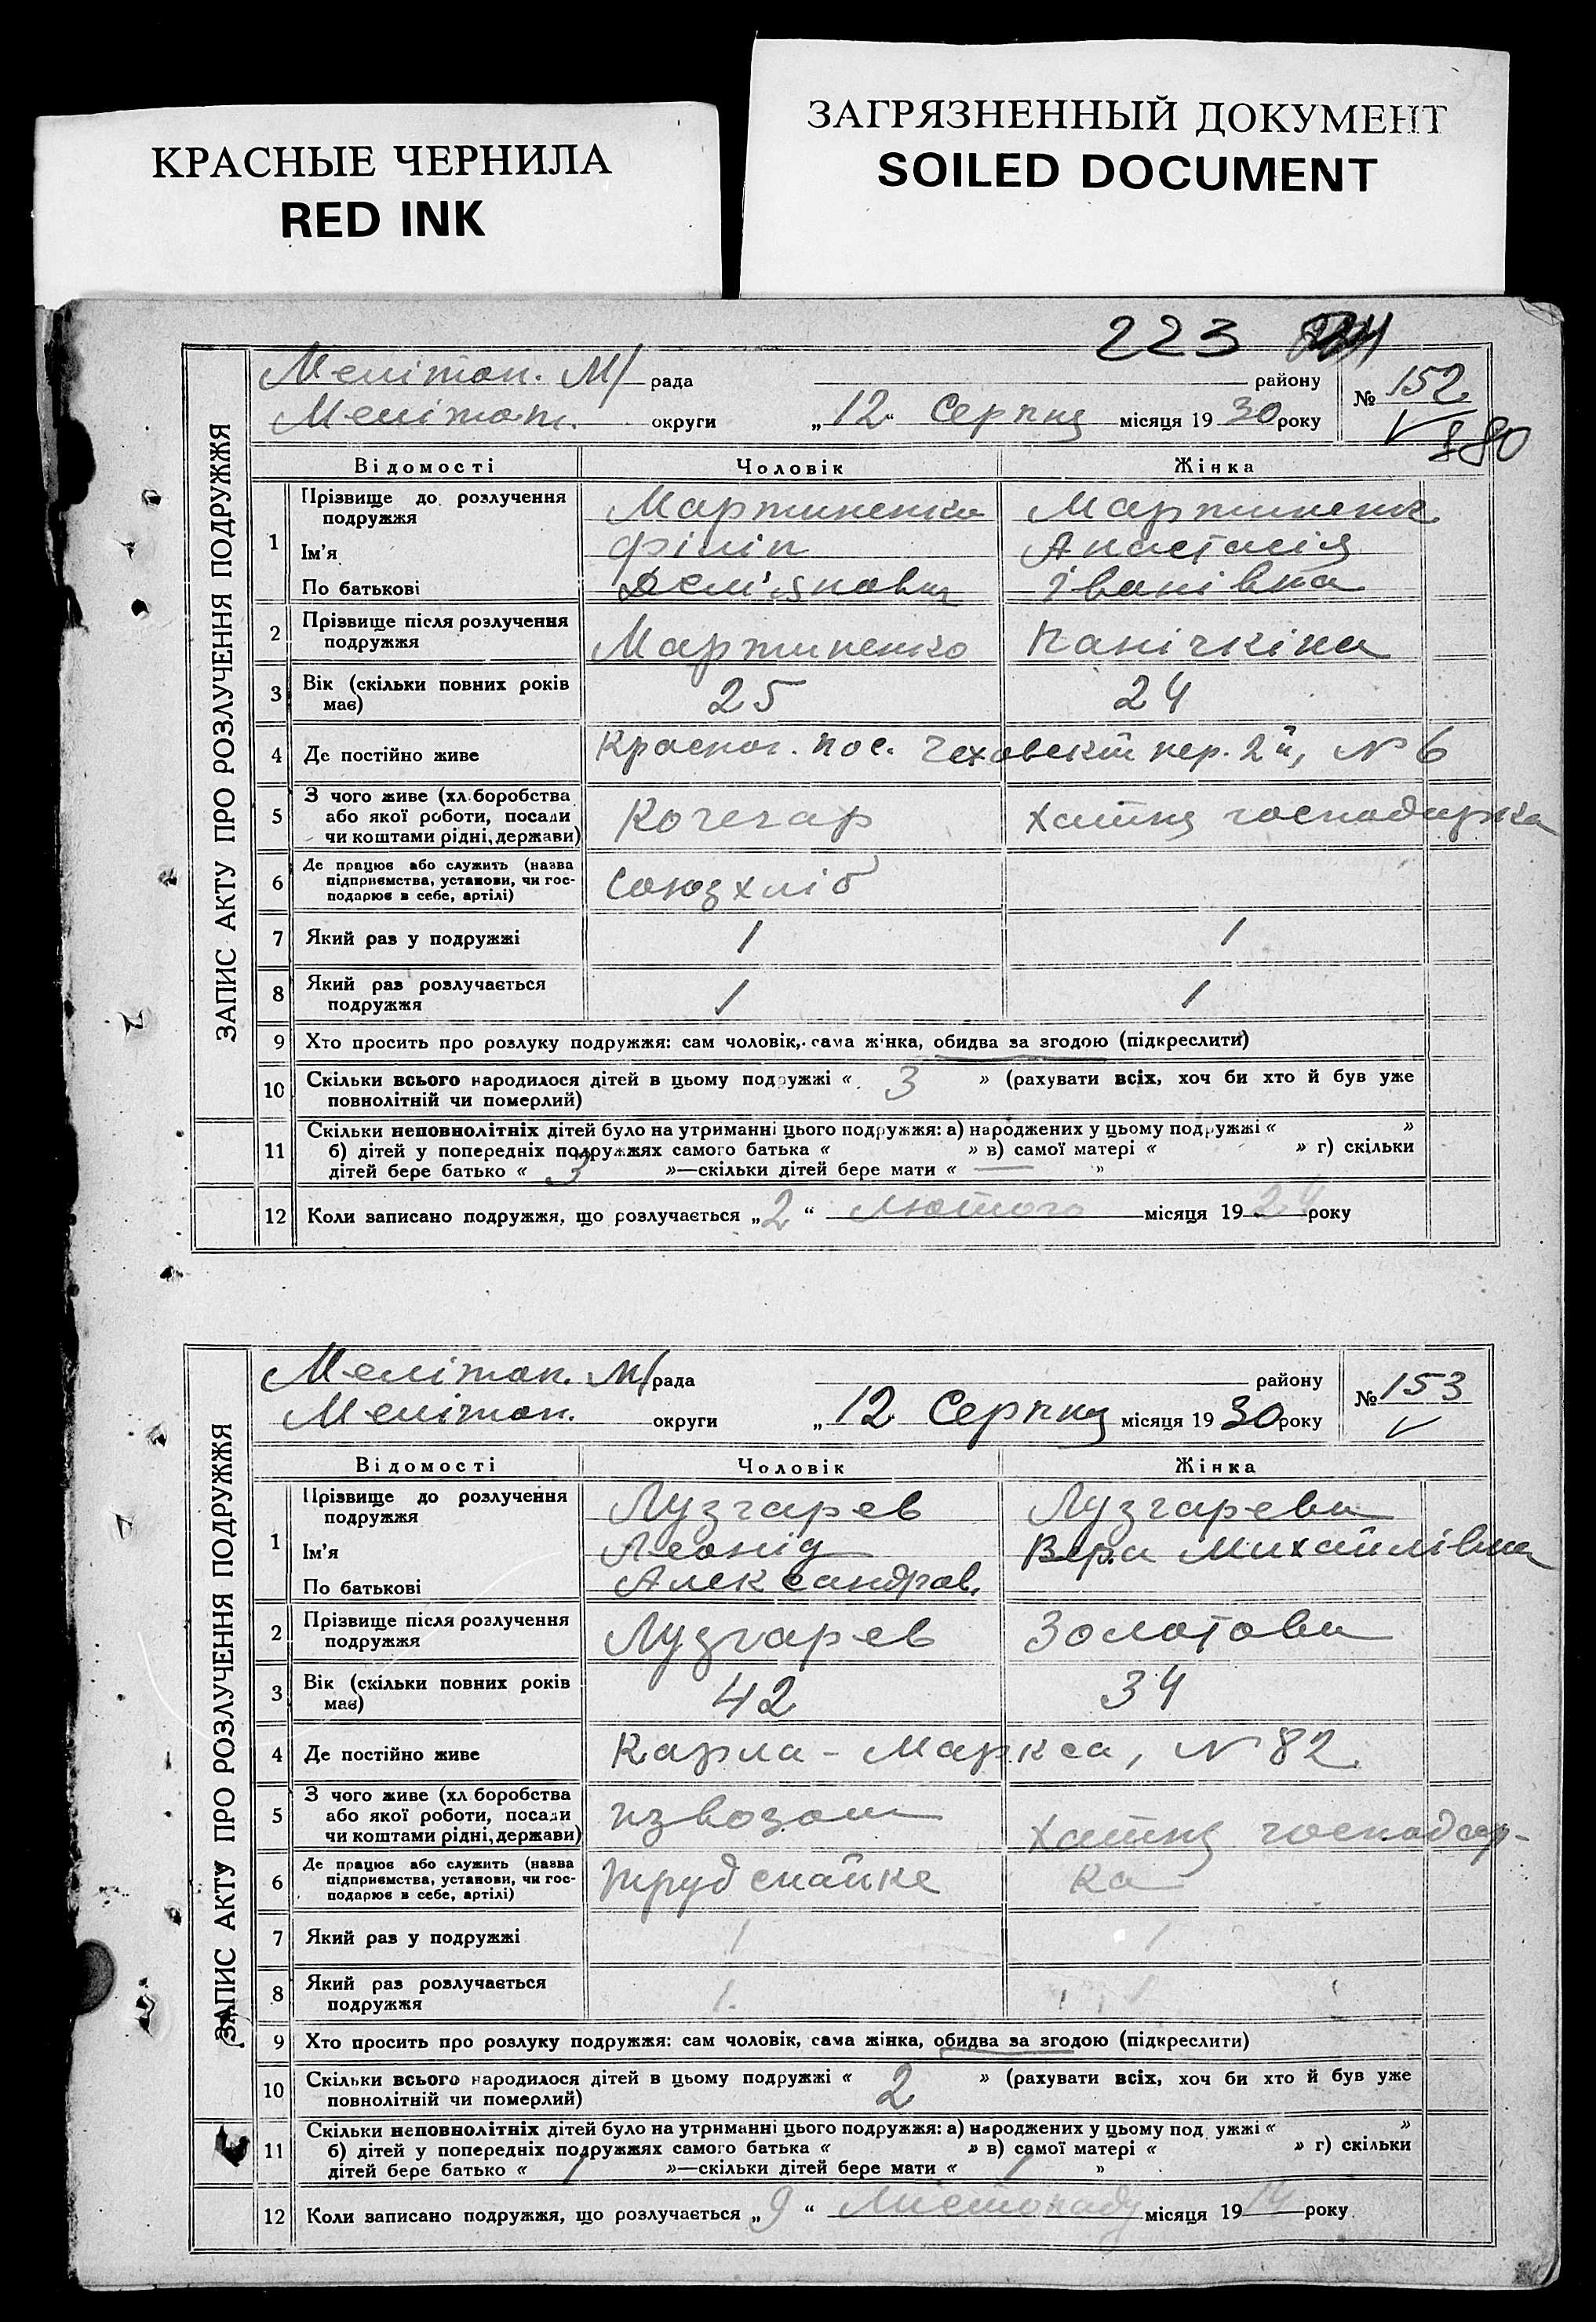 КРАСНЫЕ ЧЕРНИЛА
RED INK
ЗАГРЯЗНЕННЫЙ ДОКУМЕНТ
SOILED DOCUMENT
223
ЗАПИС АКТУ ПРО РОЗЛУЧЕННЯ ПОДРУЖЖЯ
Мелітоп. М/ рада району № 152
Мелітоп. округи „12“ Серпня місяця 1930 року
180
Відомості Чоловік Жінка
1 Прізвище до розлучення подружжя Мартиненко Мартиненк
Ім'я Філіп Анастасія
По батькові Дем'янович Іванівна
2 Прізвище після розлучення подружжя Мартиненко Панічкіна
3 Вік (скільки повних років має) 25 24
4 Де постійно живе Красног. пос. Чеховский пер. 2й, N 6
5 З чого живе (хл.боробства або якої роботи, посади чи коштами рідні, держави) Кочегар Хатня господарка
6 Де працює або служить (назва підприємства, установи, чи господарює в себе, артілі) Союзхліб
7 Який раз у подружжі 1 1
8 Який раз розлучається подружжя 1 1
9 Хто просить про розлуку подружжя: сам чоловік, сама жінка, обидва за згодою (підкреслити)
10 Скільки всього народилося дітей в цьому подружжі « 3 » (рахувати всіх, хоч би хто й був уже
повнолітній чи померлий)
11 Скільки неповнолітніх дітей було на утриманні цього подружжя: а) народжених у цьому подружжі « »
б) дітей у попередніх подружжях самого батька « » в) самої матері « » г) скільки
дітей бере батько « 3 »—скільки дітей бере мати « — »
12 Коли записано подружжя, що розлучається „2“ Лютого місяця 1924 року
ЗАПИС АКТУ ПРО РОЗЛУЧЕННЯ ПОДРУЖЖЯ
Мелітоп. М/ рада району № 153
Мелітоп. округи „12 Серпня місяця 1930 року
Відомості Чоловік Жінка
1 Прізвище до розлучення подружжя Лузгарев Лузгарева
Ім'я Леонід Вера Михайлівна
По батькові Александров.
2 Прізвище після розлучення подружжя Лузгарев Золотова
3 Вік (скільки повних років має) 42 34
4 Де постійно живе Карла-Маркса, N 82
5 З чого живе (хл.боробства або якої роботи, посади чи коштами рідні, держави) извозом Хатня господар-
6 Де працює або служить (назва підприємства, установи, чи господарює в себе, артілі) трудспайке ка
7 Який раз у подружжі 1 1
8 Який раз розлучається подружжя 1. 1
9 Хто просить про розлуку подружжя: сам чоловік, сама жінка, обидва за згодою (підкреслити)
10 Скільки всього народилося дітей в цьому подружжі « 2 » (рахувати всіх, хоч би хто й був уже
повнолітній чи померлий)
11 Скільки неповнолітніх дітей було на утриманні цього подружжя: а) народжених у цьому под ужжі « »
б) дітей у попередніх подружжях самого батька « » в) самої матері « » г) скільки
дітей бере батько « 1 »—скільки дітей бере мати « 1 »
12 Коли записано подружжя, що розлучається „9“ Листопаду місяця 1914 року